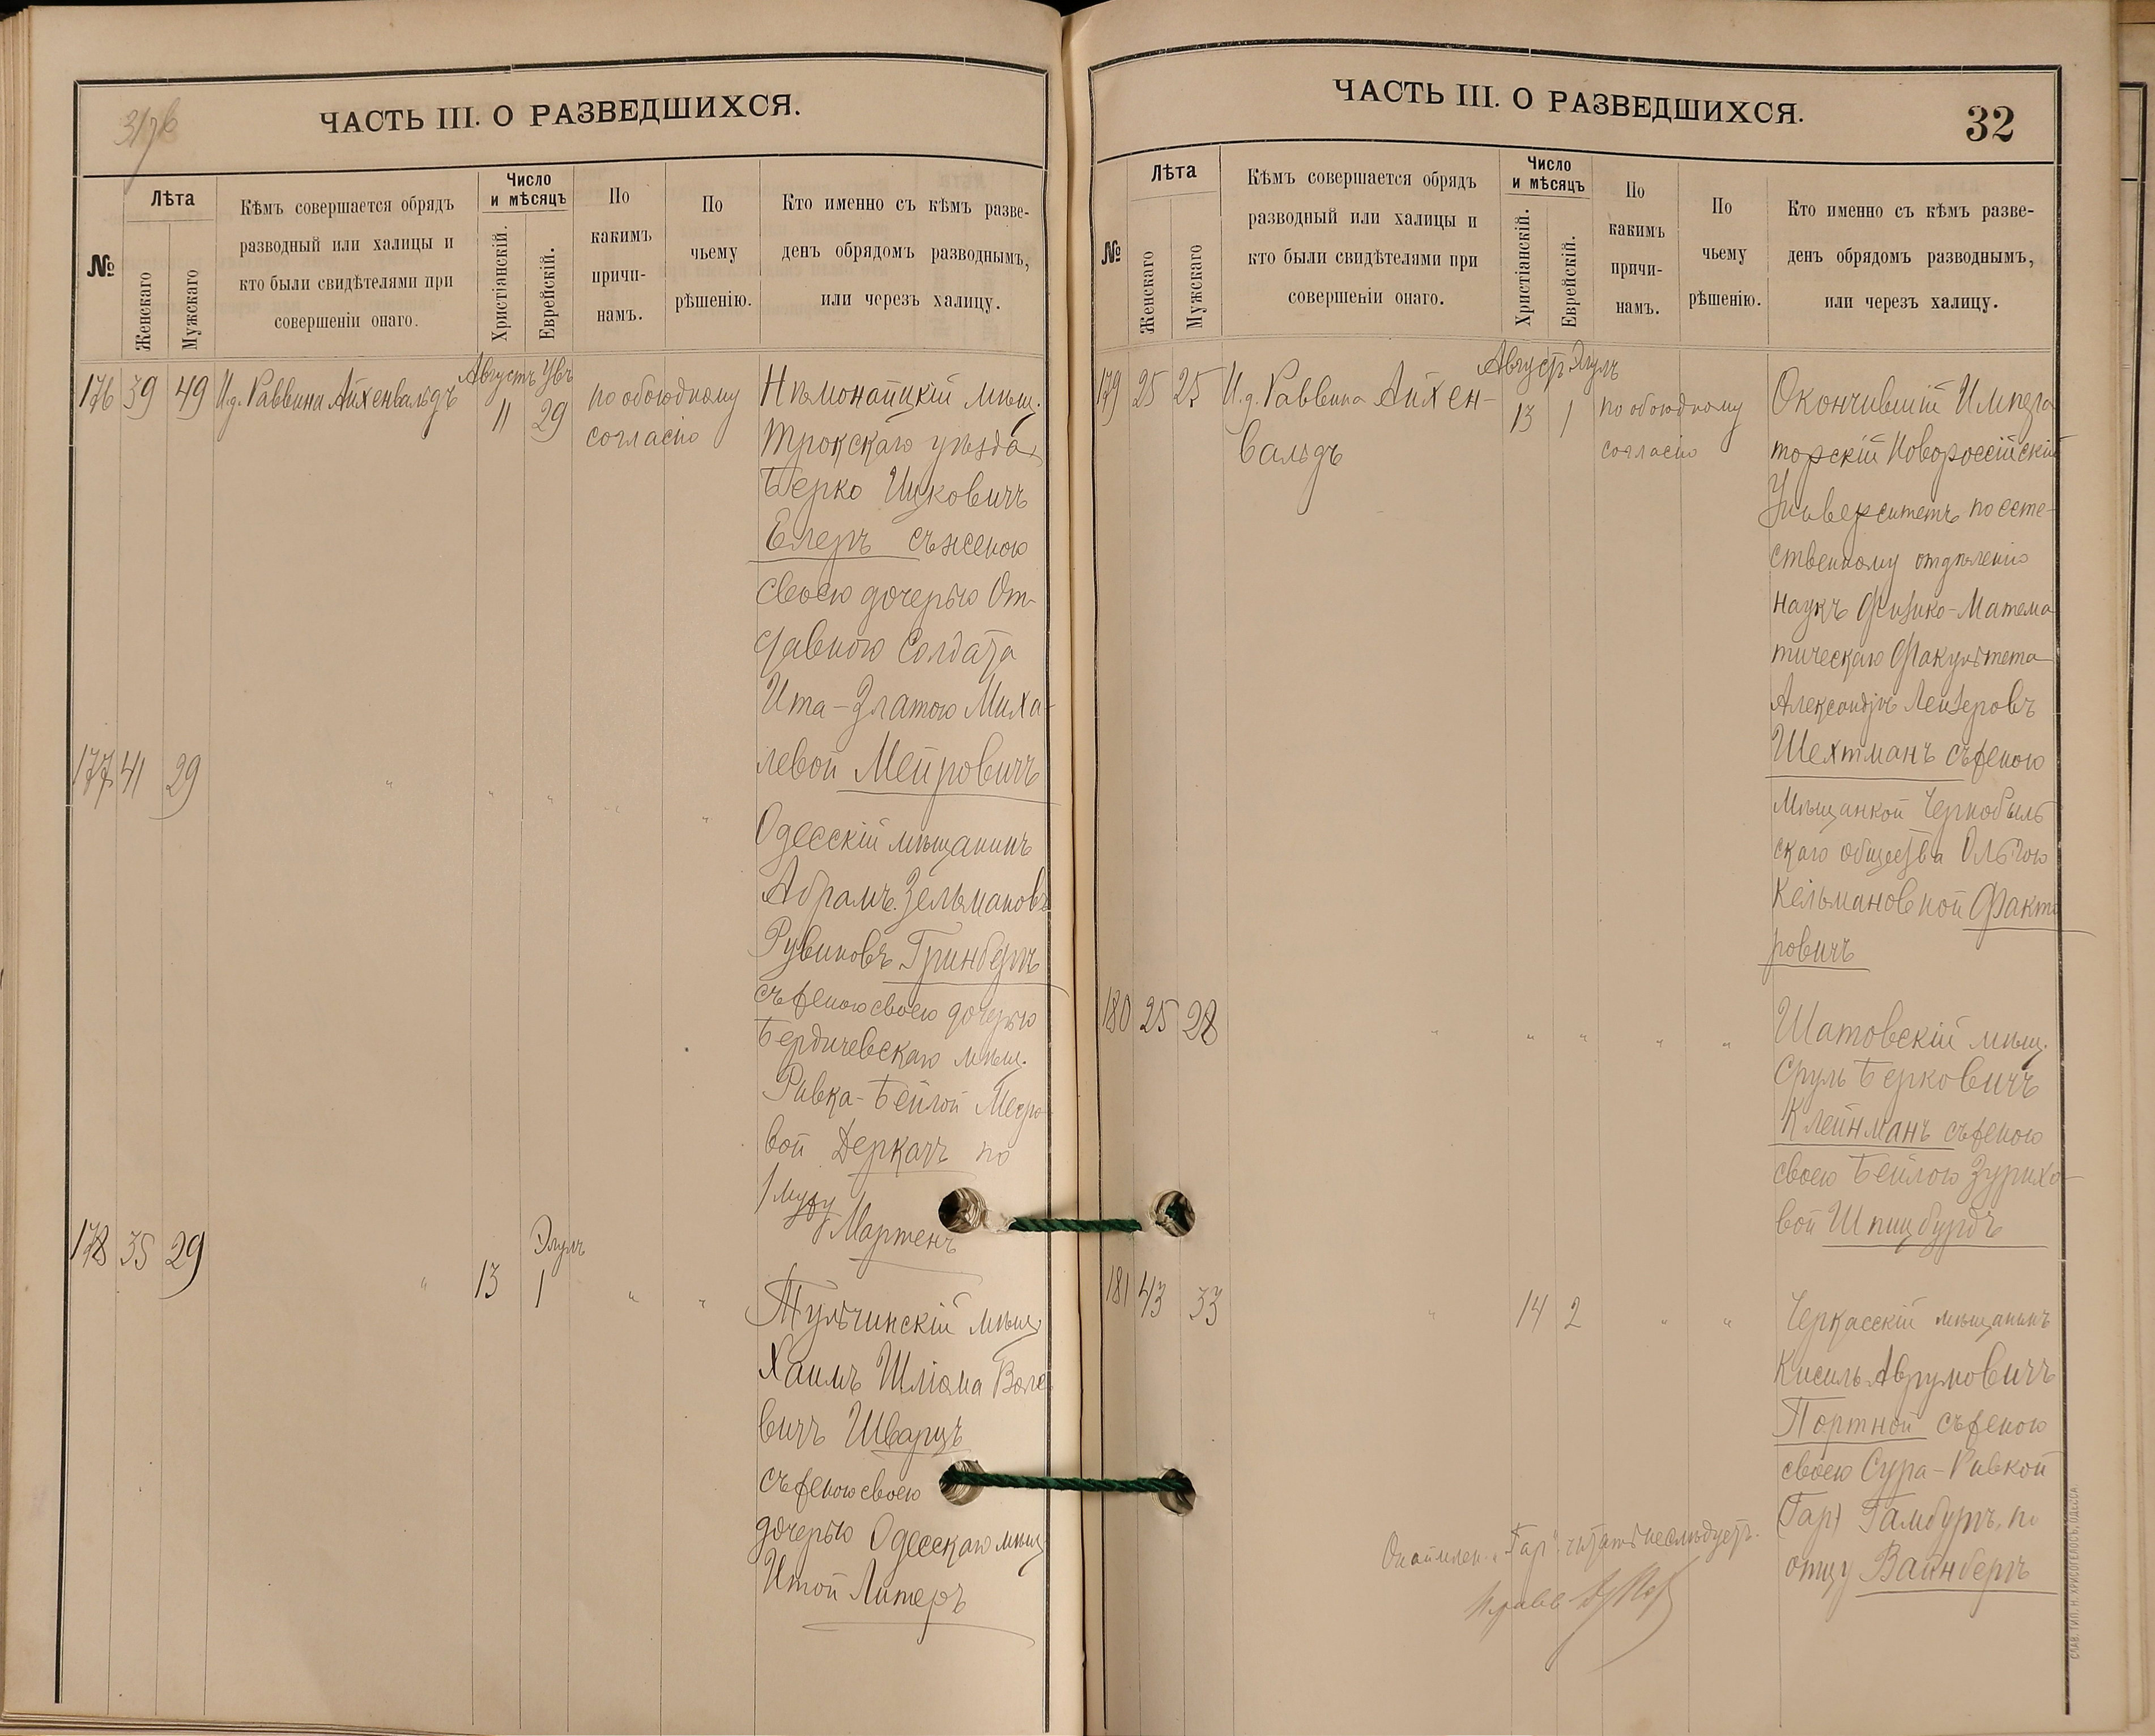 ЧАСТЬ III. О РАЗВЕДШИХСЯ.
№
Лѣта
Женскаго
Мужскаго
Кѣмъ совершается обрядъ
разводный или халицы и
кто были свидѣтелями при
совершеніи онаго.
Число
и мѣсяцъ
Христіанскій.
Еврейскій.
По
какимъ
причи-
намъ.
По
чьему
рѣшенію.
Кто именно съ кѣмъ разве-
денъ обрядомъ разводнымъ,
или черезъ халицу.
176 39 49 И.д. Раввина Айхенвальдъ Августъ 11 29 по обоюдному
согласію
Нѣмонайцкій мѣщ.
Трокскаго уѣзда
Берко Ицковичъ
Елеръ съ женою
своею дочерью От-
ставного Солдата
Ита-Златою Миха-
левой Мейровичъ
177 41 29 " " " " "
Одесскій мѣщанинъ
Абрамъ Зельмановъ
Рувиновъ Гринбергъ
съ женою своею дочерью
Бердичевскаго мѣщ.
Ривка-Бейлой Мееро-
вой Деркачъ по
1 мужу Мартенъ
178 35 29 " 13 Элулъ 1 " "
Тульчинскій мѣщ.
Хаимъ Шліома
вичъ Шварцъ
съ женою своею
дочерью Одесскаго мѣщ.
Итой Литеръ
ЧАСТЬ III. О РАЗВЕДШИХСЯ.
32
№
Лѣта
Женскаго
Мужскаго
Кѣмъ совершается обрядъ
разводный или халицы и
кто были свидѣтелями при
совершеніи онаго.
Число
и мѣсяцъ
Христіанскій.
Еврейскій.
По
какимъ
причи-
намъ.
По
чьему
рѣшенію.
Кто именно съ кѣмъ разве-
денъ обрядомъ разводнымъ,
или черезъ халицу.
179 25 25 И.д. Раввина Айхен-
вальдъ
Августъ 13 Элулъ 1 по обоюдному
согласію
Окончившій Импера
торскій Новороссійскій
Университетъ по есте-
ственному отдѣленію
наукъ Физико-Матема
тическаго Факультета
Александръ Лейзеровъ
Шехтманъ съ женою
Мѣщанкой Чернобыль
скаго общества Ольгою
Кельмановной Факто
ровичъ
180 25 28 " " " " "
Шатовскій мѣщ.
Сруль Берковичъ
Клейнманъ съ женою
своею Бейлою Зурихо-
вой Шпицбурдъ
181 43 33 " 14 2 " "
Черкасскій мѣщанинъ
Кисиль Аврумовичъ
Портной съ женою
своею Сура-Ривкой
(Гар) Гамбургъ, по
отцу Вайнбергъ
"Гар" читать не слѣдуетъ.
СЛАВ. ТИП. Н. ХРИСОГЕЛОСЪ, ОДЕССА.